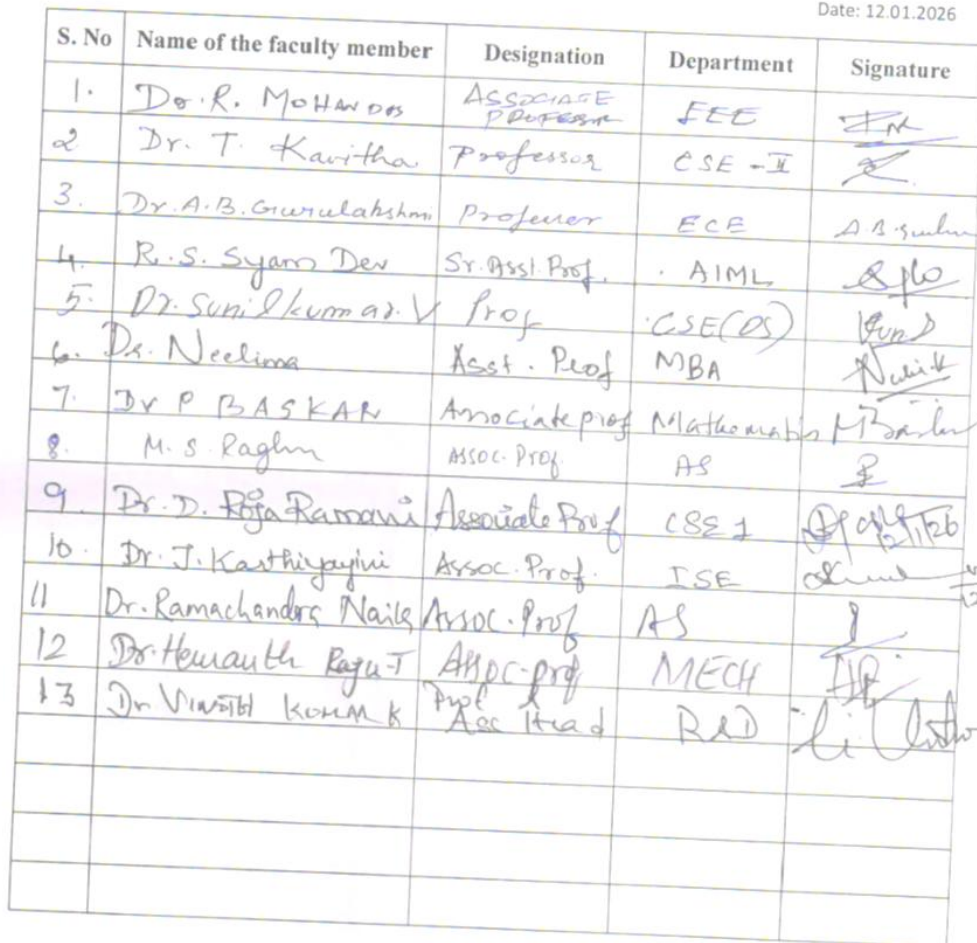 Date: 12.01.2026
S. No Name of the faculty member Designation Department Signature
1. Dr. R. MOHANDOS ASSOCIATE PROFESSOR EEE
2 Dr. T. Kavitha Professor CSE - II
3. Dr. A.B. Gurulakshmi Professor ECE
4. R. S. Syam Dev Sr. Asst. Prof. AIML
5. Dr. Sunilkumar. V Prof CSE(DS)
6. Dr. Neelima Asst. Prof MBA
7. Dr P BASKAR Associate prof Mathematics
8. M. S. Raghu Assoc. Prof. AS
9. Dr. D. Roja Ramani Associate Prof CSE 1
10. Dr. J. Karthiyayini Assoc. Prof. ISE
11 Dr. Ramachandra Naik Assoc. Prof AS
12 Dr. Hemanth Raju. T Assoc-prof MECH
13 Dr K Prof & Head R&D